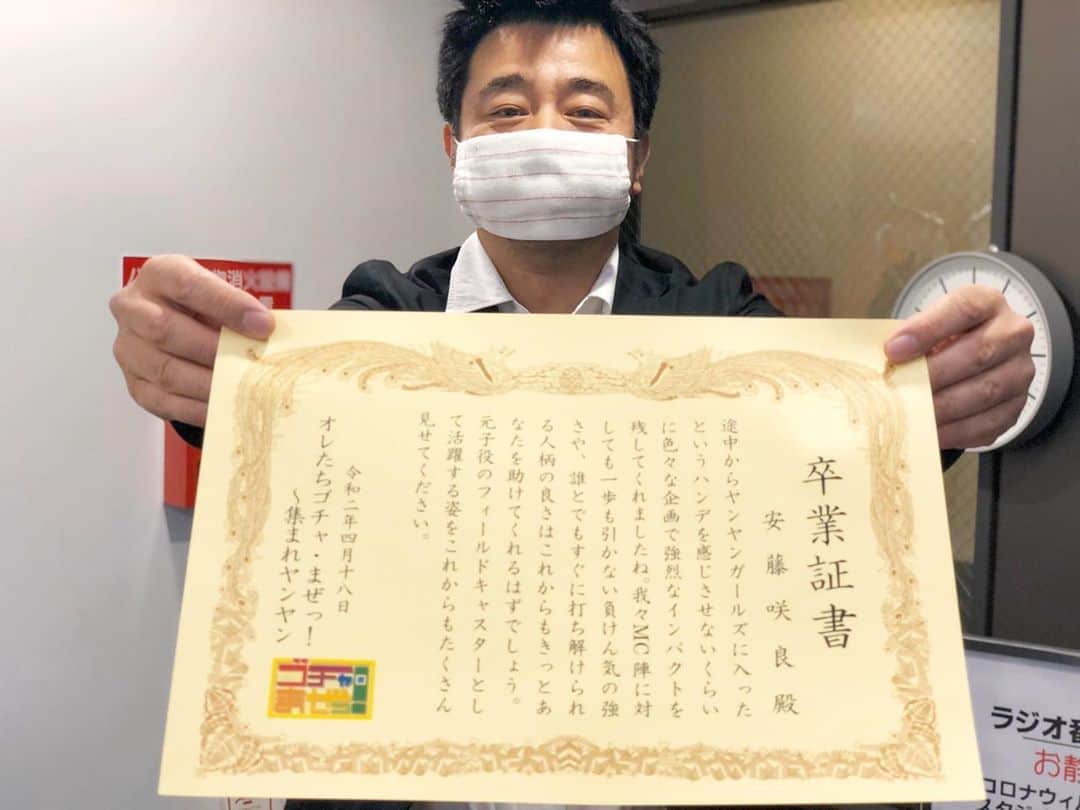 卒業証書
安藤咲良殿
途中からヤンヤンガールズに入った
というハンデを感じさせないくらい
に色々な企画で強烈なインパクトを
残してくれましたね。我々MC陣に対
しても一歩も引かない負けん気の強
さや、誰とでもすぐに打ち解けられ
る人柄の良さはこれからもきっとあ
なたを助けてくれるはずでしょう。
元子役のフィールドキャスターとし
て活躍する姿をこれからもたくさん
見せてください。
令和二年四月十八日
オレたちゴチャ・まぜっ!
〜集まれヤンヤン
ゴチャ
まぜっ!
消火散水栓
ラジオ番
お静
コロナウイ